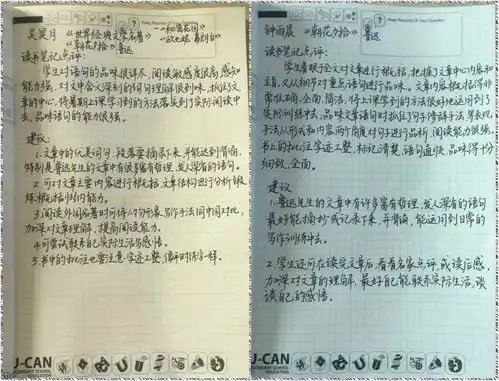 Keep Records Of Your Question
吴昊月 《世界经典文学名著》
《朝花夕拾》鲁迅
读书笔记点评:
学生对语句的品味很详尽,阅读敏感度很高,感知
能力强,对文中含义深刻的语句理解很到味,抓住了文
章的中心,将暑期上课学习到的方法落实到了实际阅读中
去,品味语句的能力很强。
建议:
1.文章中的优美词句,段落要摘录下来,并能达到背诵,
特别是鲁迅先生的文章中有很多富有哲理,发人深省的语句。
2.可对文章主要内容进行概括,文章结构进行分析,锻
炼概括归纳能力。
3.阅读外国名著时可将人物形象、写作手法同中国对比,
加深对文章理解,提高阅读能力。
4.可尝试联系自己实际生活写感悟。
5.书中的批注也要注意字迹工整,像平时练字一样。
U-CAN
SECONDARY SCHOOL
EDUCATION
Keep Records Of Your Question
钟雨晨 《朝花夕拾》鲁迅
读书笔记点评:
学生着眼于全文对文章进行概括,把握了文章中心内容和
主旨,又从细节对重点语句进行品味。文章内容概括得非
常准确,全面,简洁,将上课学到的方法很好地运用到了
实际训练中去,品味文章语句时抓住了句子修辞手法、等表现
手法从形式和内容两个角度对句子进行品析,阅读能力很强,
书上的批注字迹工整,标记清楚,语句通快,品味得十分
细致,全面。
建议
1.鲁迅先生的文章中有许多富有哲理,发人深省的语句
最好能摘抄或记录下来,并背诵,能运用到日常的
写作训练中去。
2.学生还可在读完文章后,看看名家点评,或读后感,
加深对文章的理解,最好自己能联系实际生活,谈
谈自己的感悟。
U-CAN
SECONDARY SCHOOL
EDUCATION